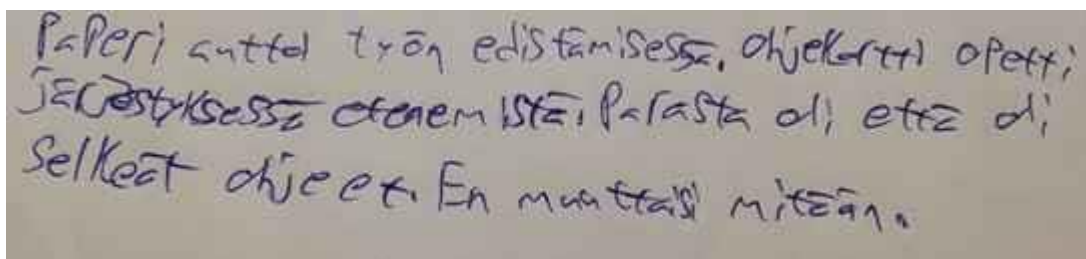 Paperi auttoi työn edistämisessä. Ohjekortti opetti
järjestyksessä etenemistä. Parasta oli että oli
selkeät ohjeet. En muuttaisi mitään.